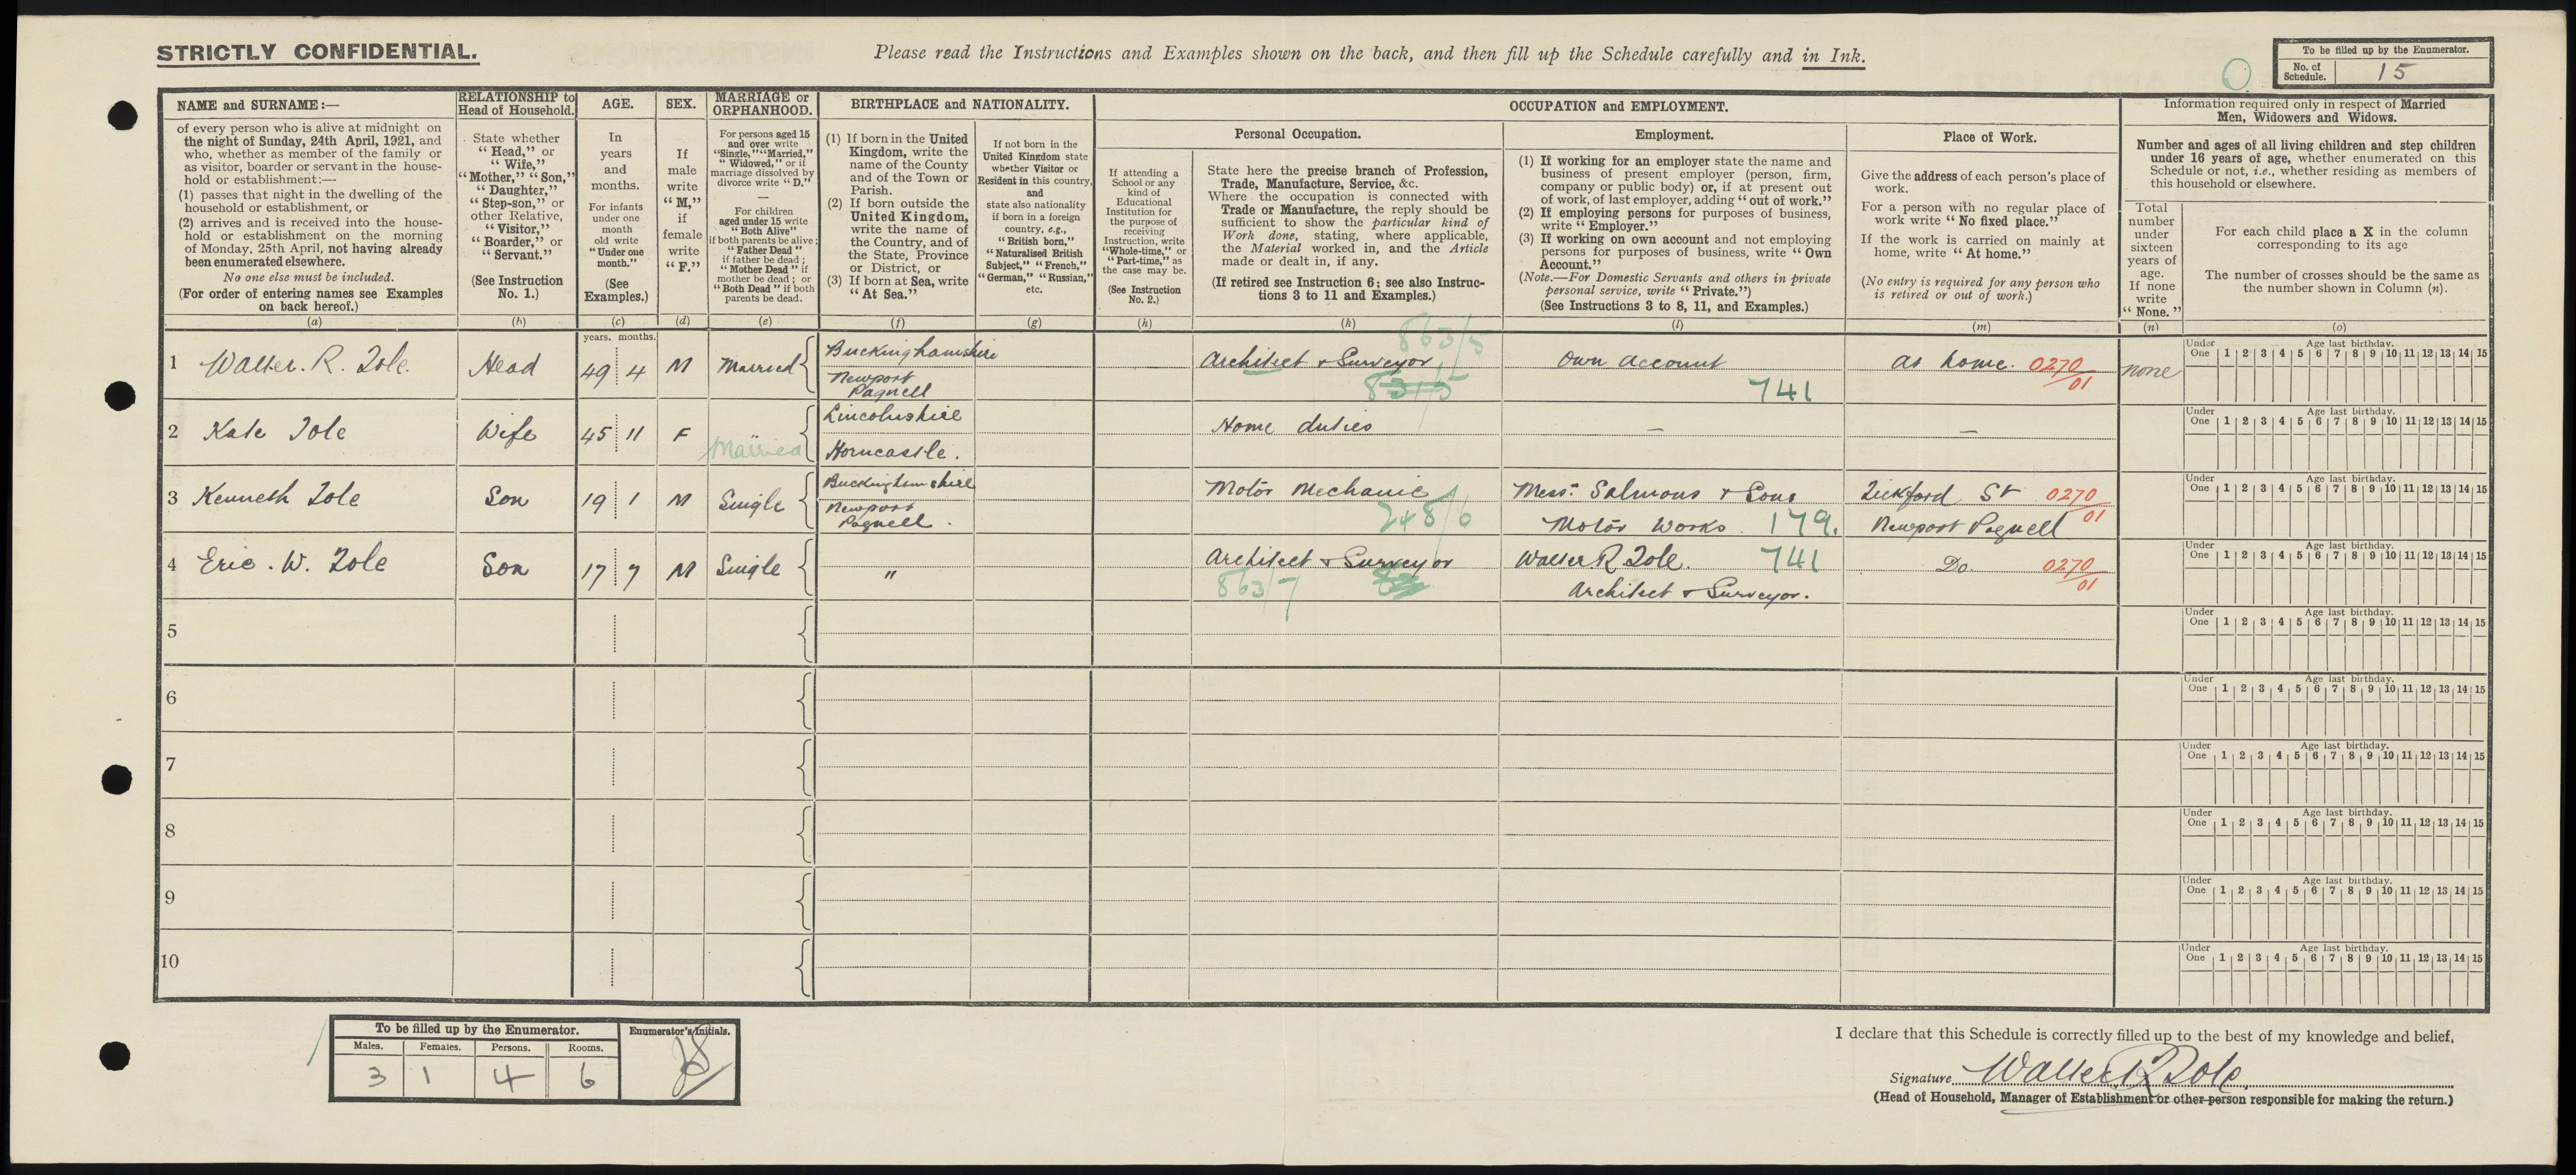 STRICTLY CONFIDENTIAL.
Please read the Instructions and Examples shown on the back, and then fill up the Schedule carefully and in Ink.
To be filled up by the Enumerator.
No. of Schedule. 15
NAME and SURNAME:—
of every person who is alive at midnight on
the night of Sunday, 24th April, 1921, and
who, whether as member of the family or
as visitor, boarder or servant in the house-
hold or establishment:—
(1) passes that night in the dwelling of the
household or establishment, or
(2) arrives and is received into the house-
hold or establishment on the morning
of Monday, 25th April, not having already
been enumerated elsewhere.
No one else must be included.
(For order of entering names see Examples
on back hereof.)
(a)
RELATIONSHIP to
Head of Household.
State whether
"Head," or
"Wife,"
"Mother," "Son,"
"Daughter,"
"Step-son," or
other Relative,
"Visitor,"
"Boarder," or
"Servant."
(See Instruction
No. 1.)
(b)
AGE.
In
years
and
months.
For infants
under one
month
old write
"Under one
month."
(See
Examples.)
(c)
SEX.
If
male
write
"M,"
if
female
write
"F."
(d)
MARRIAGE or
ORPHANHOOD.
For persons aged 15
and over write
"Single," "Married,"
"Widowed," or if
marriage dissolved by
divorce write "D."
—
For children
aged under 15 write
"Both Alive"
if both parents be alive;
"Father Dead"
if father be dead;
"Mother Dead" if
mother be dead; or
"Both Dead" if both
parents be dead.
(e)
BIRTHPLACE and NATIONALITY.
(1) If born in the United
Kingdom, write the
name of the County
and of the Town or
Parish.
(2) If born outside the
United Kingdom,
write the name of
the Country, and of
the State, Province
or District, or
(3) If born at Sea, write
"At Sea."
(f)
If not born in the
United Kingdom state
whether Visitor or
Resident in this country,
and
state also nationality
if born in a foreign
country, e.g.,
"British born,"
"Naturalised British
Subject," "French,"
"German," "Russian,"
etc.
(g)
OCCUPATION and EMPLOYMENT.
If attending a
School or any
kind of
Educational
Institution for
the purpose of
receiving
Instruction, write
"Whole-time," or
"Part-time," as
the case may be.
(See Instruction
No. 2.)
(h)
Personal Occupation.
State here the precise branch of Profession,
Trade, Manufacture, Service, &c.
Where the occupation is connected with
Trade or Manufacture, the reply should be
sufficient to show the particular kind of
Work done, stating, where applicable,
the Material worked in, and the Article
made or dealt in, if any.
(If retired see Instruction 6; see also Instruc-
tions 3 to 11 and Examples.)
(k)
Employment.
(1) If working for an employer state the name and
business of present employer (person, firm,
company or public body) or, if at present out
of work, of last employer, adding "out of work."
(2) If employing persons for purposes of business,
write "Employer."
(3) If working on own account and not employing
persons for purposes of business, write "Own
Account."
(Note.—For Domestic Servants and others in private
personal service, write "Private.")
(See Instructions 3 to 8, 11, and Examples.)
(l)
Place of Work.
Give the address of each person's place of
work.
For a person with no regular place of
work write "No fixed place."
If the work is carried on mainly at
home, write "At home."
(No entry is required for any person who
is retired or out of work.)
(m)
Information required only in respect of Married
Men, Widowers and Widows.
Number and ages of all living children and step children
under 16 years of age, whether enumerated on this
Schedule or not, i.e., whether residing as members of
this household or elsewhere.
Total
number
under
sixteen
years of
age.
If none
write
"None."
(n)
For each child place a X in the column
corresponding to its age
The number of crosses should be the same as
the number shown in Column (n).
(o)
years. months.
1 Walter. R. Tole. Head 49 4 M Married Buckinghamshire Newport Pagnell Architect & Surveyor 863/5 Own account 741 At home. 0270/01 none
Under One 1 2 3 4 5 6 7 8 9 10 11 12 13 14 15
Age last birthday.
2 Kate Tole Wife 45 11 F Married Lincolnshire Horncastle. Home duties — —
Under One 1 2 3 4 5 6 7 8 9 10 11 12 13 14 15
Age last birthday.
3 Kenneth Tole Son 19 1 M Single Buckinghamshire Newport Pagnell. Motor Mechanic 248/6 Messrs Salmons & Sons Motor Works. 179. Tickford St Newport Pagnell 0270/01
Under One 1 2 3 4 5 6 7 8 9 10 11 12 13 14 15
Age last birthday.
4 Eric. W. Tole Son 17 7 M Single " Architect & Surveyor 863/7 Walter R Tole. 741 Architect & Surveyor. Do. 0270/01
Under One 1 2 3 4 5 6 7 8 9 10 11 12 13 14 15
Age last birthday.
5
Under One 1 2 3 4 5 6 7 8 9 10 11 12 13 14 15
Age last birthday.
6
Under One 1 2 3 4 5 6 7 8 9 10 11 12 13 14 15
Age last birthday.
7
Under One 1 2 3 4 5 6 7 8 9 10 11 12 13 14 15
Age last birthday.
8
Under One 1 2 3 4 5 6 7 8 9 10 11 12 13 14 15
Age last birthday.
9
Under One 1 2 3 4 5 6 7 8 9 10 11 12 13 14 15
Age last birthday.
10
Under One 1 2 3 4 5 6 7 8 9 10 11 12 13 14 15
Age last birthday.
To be filled up by the Enumerator.
Males. Females. Persons. Rooms.
3 1 4 6
Enumerator's Initials.
I declare that this Schedule is correctly filled up to the best of my knowledge and belief,
Signature Walter R Tole.
(Head of Household, Manager of Establishment or other person responsible for making the return.)